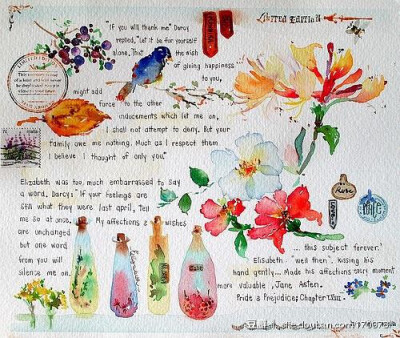 LIMITED EDITION
"If you will thank me" Darcy
replied, "let it be for yourself
alone. That the wish
of giving happiness
to you,
might add
force to the other
inducements which let me on,
I shall not attempt to deny. But your
family owe me nothing. Much as I respect them
I believe I thought of only you."
Elizabeth was too much embarrassed to say
a word. Darcy: "If your feelings are
still what they were last april, Tell
me so at once. My affections & wishes
are unchanged
but one word
from you will
silence me on
... this subject forever."
Elisabeth "well then", kissing his
hand gently... Made his affections every moment
more valuable. Jane Asten.
Pride & Prejudice; Chapter
Rose